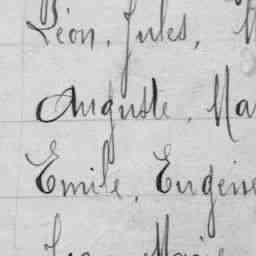 Léon, Jules,
Auguste, Ma
Emile, Eugène